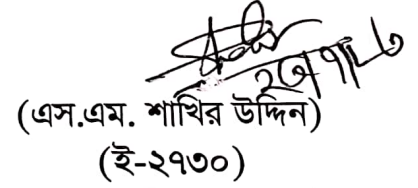 (এস.এম. শাখির উদ্দিন)
(ই-২৭৩০)